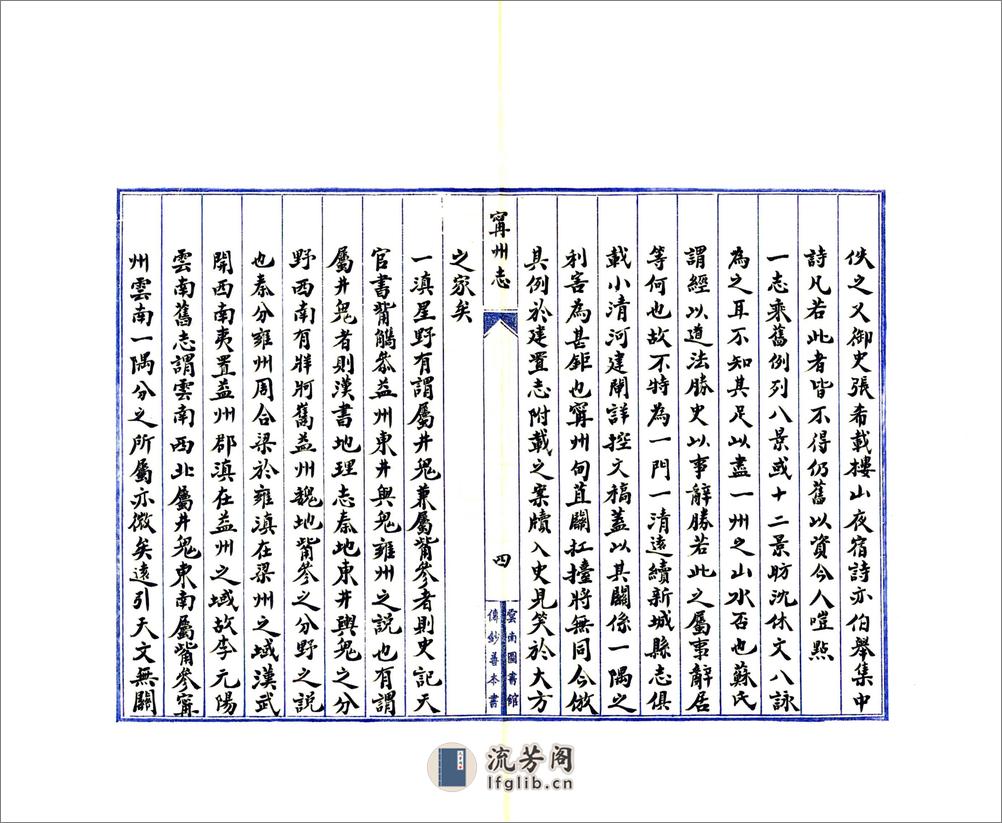 佚之又御史張希載樓山夜宿詩亦伯舉集中
詩凡若此者皆不得仍舊以資今人噬點
一志乘舊例列八景或十二景昉沈休文八詠
為之耳不知其足以盡一州之山水否也蘇氏
謂經以道法勝史以事辭勝若此之屬事辭居
等何也故不特為一門一清遠續新城縣志俱
載小清河建閘詳控文稿蓋以其關係一隅之
利害為甚鉅也寗州甸苴關扛擡將無同今倣
其例於建置志附載之案牘入史見笑於大方
之家矣
寗州志
四
雲南圖書館
傳鈔善本書
一滇星野有謂屬井鬼兼屬觜參者則史記天
官書觜觿參益州東井輿鬼雍州之說也有謂
屬井鬼者則漢書地理志秦地東井輿鬼之分
野西南有牂牁嶲益州魏地觜參之分野之說
也秦分雍州周合梁於雍滇在梁州之域漢武
開西南夷置益州郡滇在益州之域故李元陽
雲南舊志謂雲南西北屬井鬼東南屬觜參寗
州雲南一隅分之所屬亦微矣遠引天文無關
流芳阁
lfglib.cn